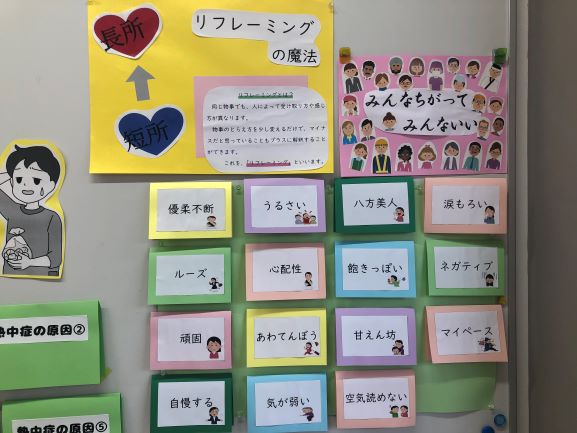 リフレーミング
の魔法
長所
短所
リフレーミングとは？
同じ物事でも、人によって受け取り方や感じ
方が異なります。
物事のとらえ方を少し変えるだけで、マイナ
スだと思っていることもプラスに解釈すること
ができます。
これを、「リフレーミング」といいます。
みんなちがって
みんないい
優柔不断
うるさい
八方美人
涙もろい
ルーズ
心配性
飽きっぽい
ネガティブ
頑固
あわてんぼう
甘えん坊
マイペース
自慢する
気が弱い
空気読めない
熱中症の原因②
熱中症の原因⑤